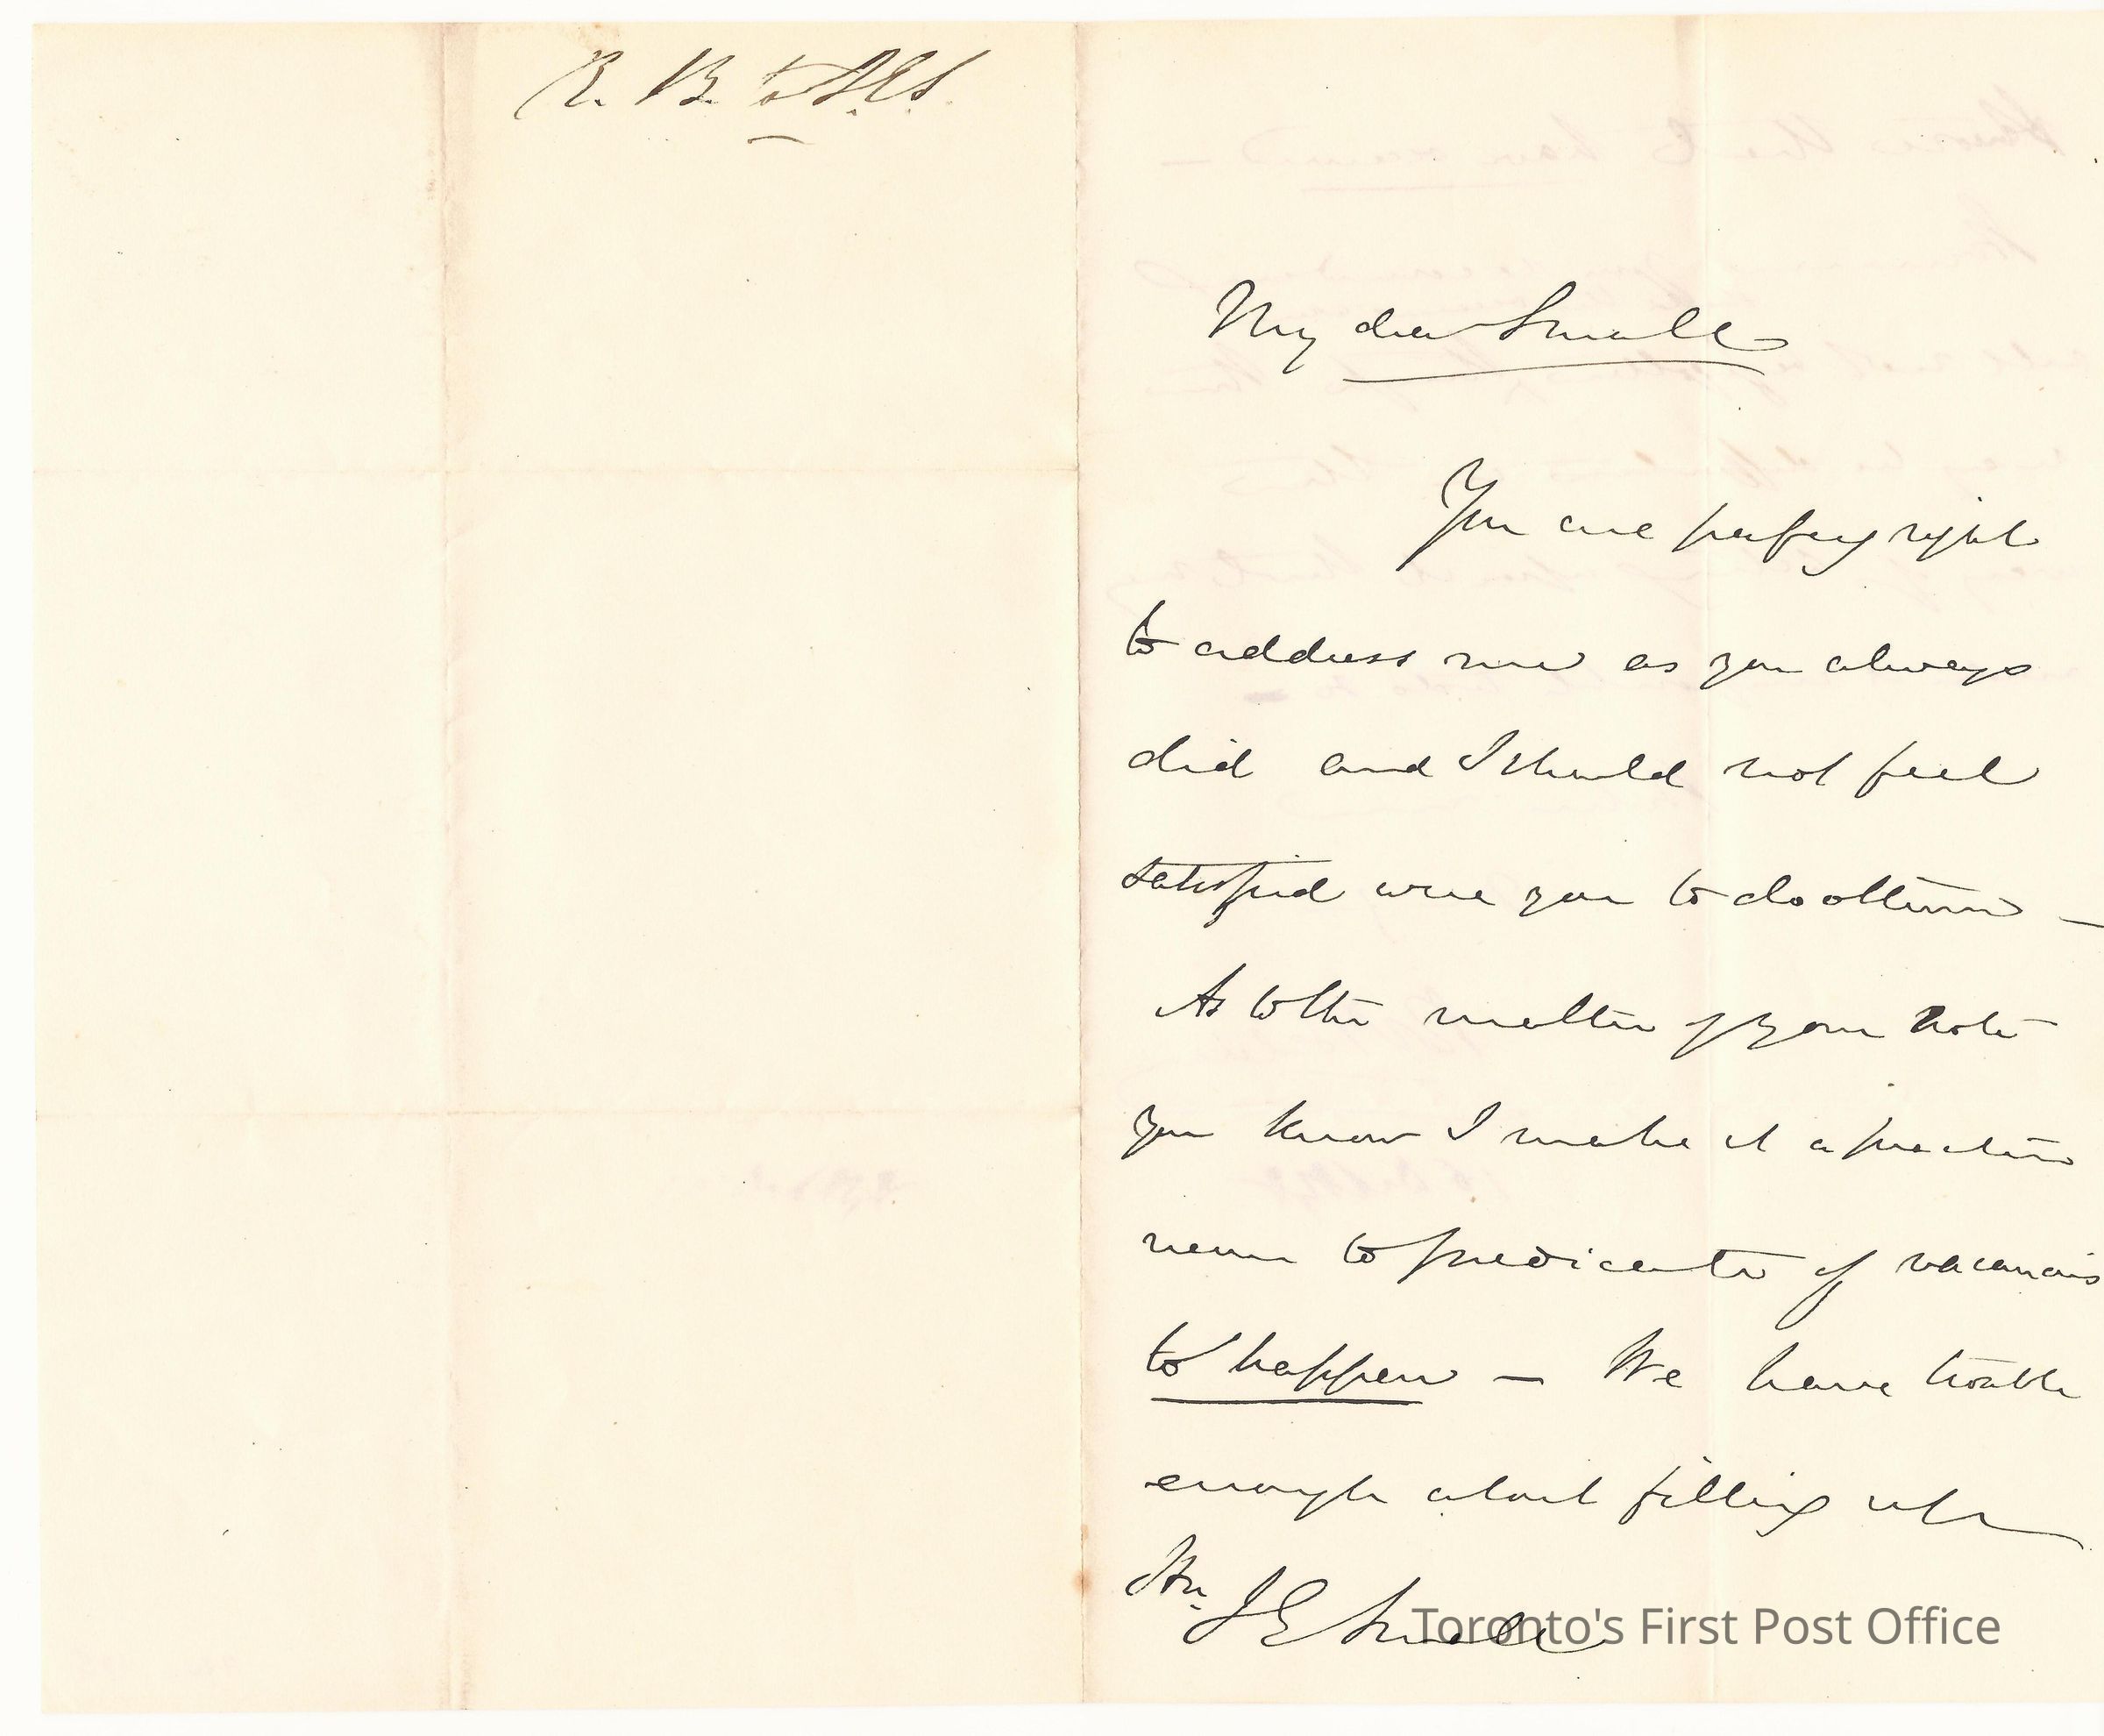 R. B. to J.E.S.
My dear Small
You are perfectly right
to address me as you always
did and I should not feel
satisfied were you to do otherwise —
As to the matter of your note
you know I make it a practice
never to predicate of vacancies
to happen — We have trouble
enough about filling up
Hn. J E Small
Toronto's First Post Office